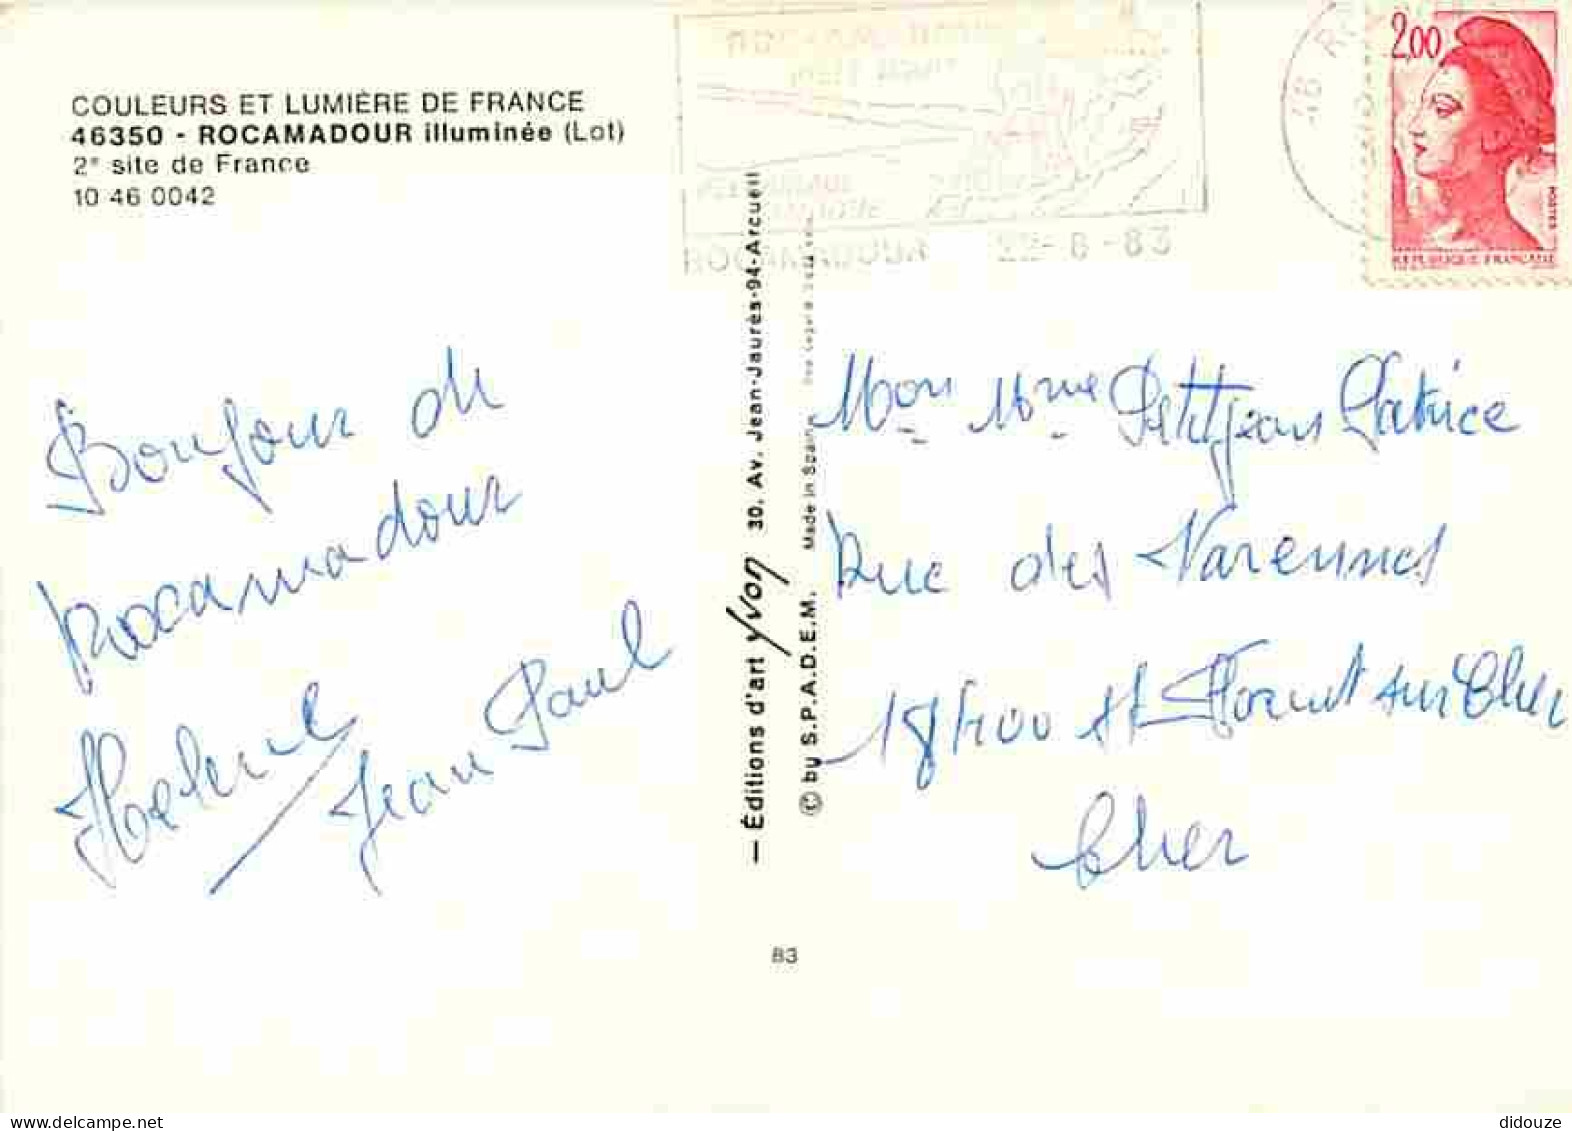 COULEURS ET LUMIÈRE DE FRANCE
46350 - ROCAMADOUR illuminée (Lot)
2e site de France
10 46 0042
ROCAMADOUR 22-8-83
2,00
POSTES
REPUBLIQUE FRANÇAISE
Bonjour de
Rocamadour
Helene / Jean Paul
— Éditions d'art yvon 30, Av. Jean-Jaurès-94-Arcueil
© by S.P.A.D.E.M. Made in Spain
Mon Mme Petitjean Patrice
Rue des Varennes
18400 St Florent sur Cher
Cher
83
didouze